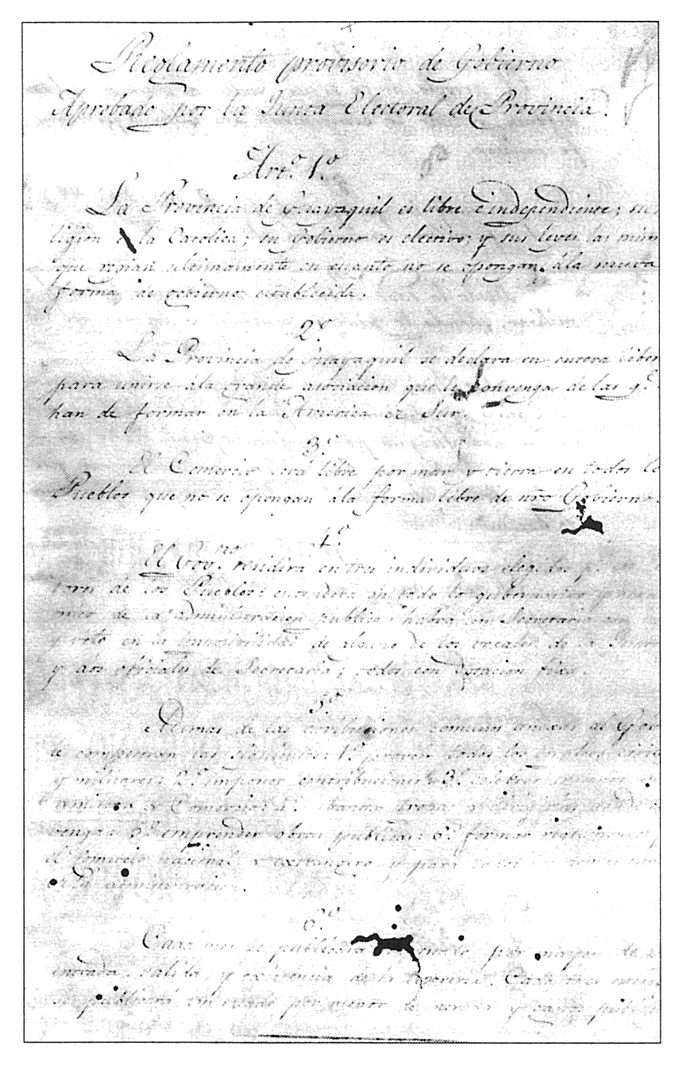 Reglamento provisorio de Gobierno
Aprobado por la Junta Electoral de Provincia.
Art.º 1.º
La Provincia de Guayaquil es libre é independiente; su
ligion es la Catolica; su Gobierno es electivo; y sus leyes las mism
que regian ultimamente en cuanto no se opongan ála nueva
forma de gobierno establecida.
2º
La Provincia de Guayaquil se declara en entera liber
para unirse ála grande asociacion que le convenga de las q.e
han de formar en la America del Sur.
3.º
El Comercio será libre por mar y tierra en todos lo
Pueblos que no se opongan ála forma libre de nro Gobierno.
4.º
El Gov.no residirá en tres individuos elegidos p.
tores de los Pueblos: entenderá en todo lo gubernativo y
mico de la administracion publica: habrá un Secretario con
y voto en la imposibilidad de alguno de los vocales de la
y dos oficiales de Secretaria; todos con dotacion fixa.
5.º
Ademas de las atribuciones comunes anexas al Gov
le competen las siguientes: 1.º proveer todos los empleos civile
y militares: 2.º imponer contribuciones: 3.º celebrar
amistad y Comercio: 4.º levantar tropas y
venga: 5.º emprender obras publicas: 6.º formar reglamentos
el comercio nacional y extrangero y para todos
de la administracion.
6.º
Cada mes se publicará por mayor de
entrada, salida y existencia de la tesoreria. Cada tres meses
se publicará un estado por menor de